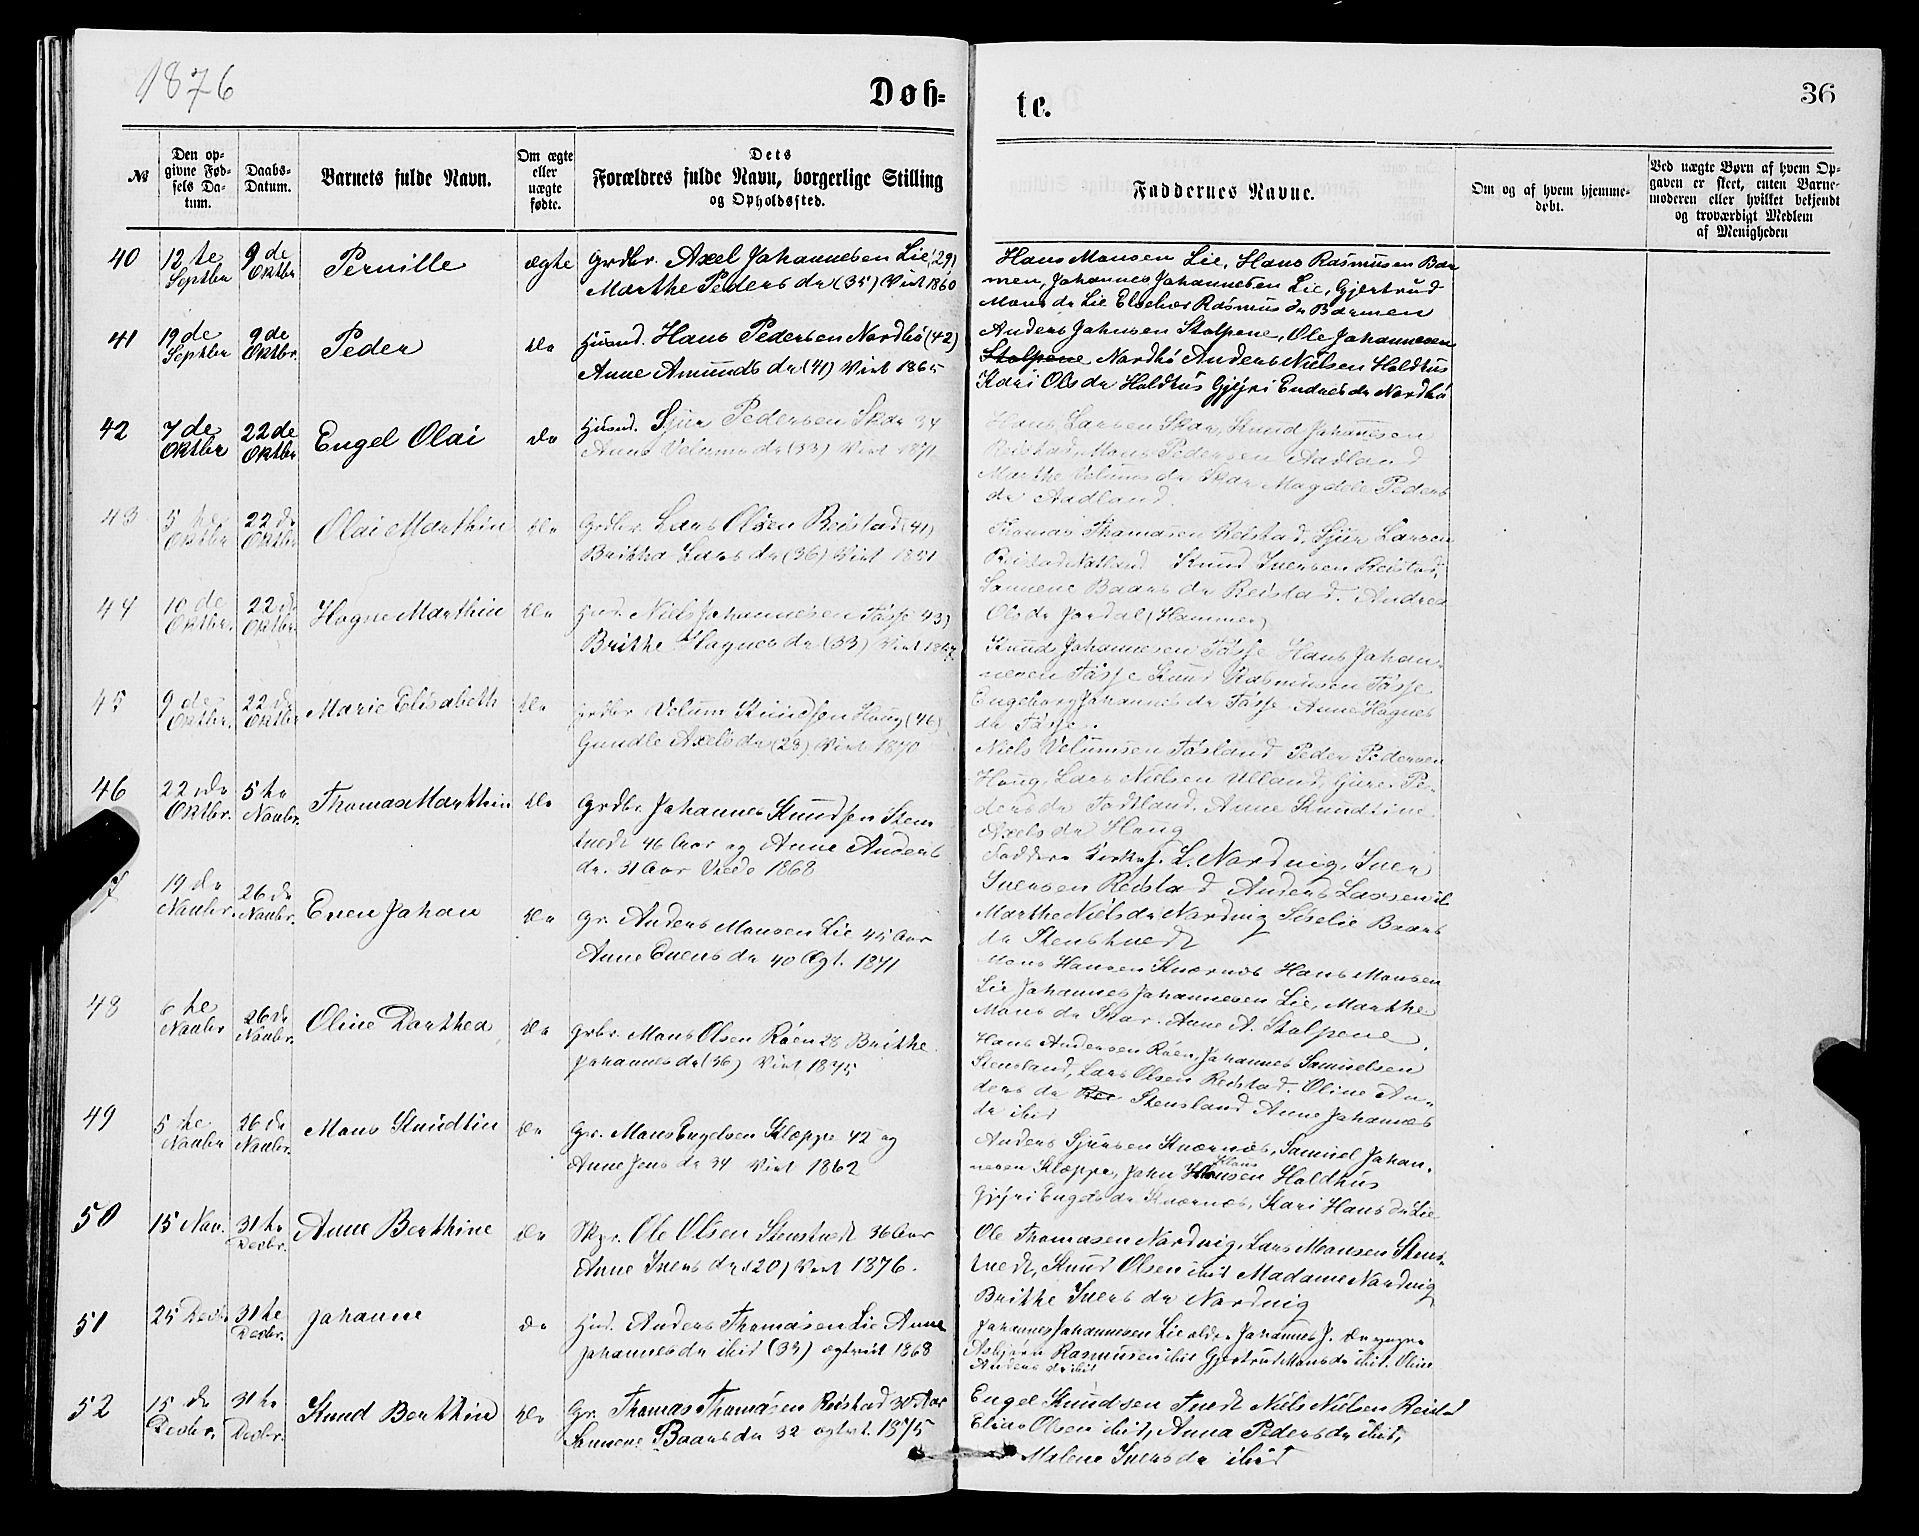 1876
Døb-
te.
36
№
Den op-
givne Fød-
sels Da-
tum.
Daabs-
Datum.
Barnets fulde Navn.
Om ægte
eller
uægte
fødte.
Dets
Forældres fulde Navn, borgerlige Stilling
og Opholdssted.
Faddernes Navne.
Om og af hvem hjemme-
døbt.
Ved uægte Børn af hvem Op-
gaven er skeet, enten Barne-
moderen eller hvilket bekjendt
og troværdigt Medlem
af Menigheden
40
12te
Septbr
9de
Oktbr
Pernille
ægte
Grdbr. Axel Johannesen Lie (29)
Marthe Peders dr (35) Viet 1860
Hans Monsen Lie, Hans Rasmusen Bar
men, Johannes Johannesen Lie, Gjertrud
Mons dr Lie Rasmus dr Barmen
41
19de
Septbr
9de
Oktbr.
Peder
do
Husmd. Hans Pedersen Nordbø (42)
Anne Amunds dr (41) Viet 1865
Anders Johnsen Stolpene, Ole Johannesen
Stolpene Nordbø Anders Nielsen Holdhus
Kari Ols dr Holdhus Gjyri Endres dr Nordbø
42
7de
Oktbr
22de
Oktbr
Engel Olai
do
Husmd. Sjur Pedersen Skar 34
Anne Velums dr (33) Viet 1871
Hans Larsen Skar, Knud Johannesen
Reistad, Mons Pedersen Aadland
Marthe Velums dr Skar Magdele Peders
dr Aadland.
43
5te
Oktbr
22de
Oktbr
Olai Marthin
do
Grdbr. Lars Olsen Reistad (41)
Brithe Lars dr (36) Viet 1851
Thomas Thomasen Reistad, Sjur Larsen
Reistad Natland Knud Iversen Reistad,
Sannene Baars dr Reistad. Andrea
Ols dr Jordal (Hammer)
44
10de
Oktbr.
22de
Oktbr.
Hagne Marthin
do
Hmd. Niels Johannesen Tøsse 43)
Brithe Hagnes dr (33) Viet
Knud Johannesen Tøsse Hans Johan-
nesen Tøsse Knud Rasmusen Tøsse
Engeborg Johannes dr Tøsse Anne Hagnes
dr Tøsse.
45
9de
Oktbr.
22de
Oktbr
Marie Elisabeth
do
Grdbr Velum Knudsen Haug (46)
Gundle Axels dr (29) Viet 1870
Niels Velumsen Peder Pedersen
Haug, Lars Nielsen Ulland, Guri Pe-
ders dr Anne Knudtine
Axels dr Haug
46
22de
Oktbr.
5te
Novbr.
Thomas Marthin
do
Grdbr Johannes Knudsen Stens
tvedt 46 Aar og Anne Anders
dr. 31 Aar Viede 1868
Faddere Kirks. L. Nordvig, Iver
Iversen Reistad Anders Larsen ib
Marthe Niels dr Nordvig Siselie Baars
dr Stenstvedt
19de
Novbr.
26de
Novbr.
Even Johan
do
Gr. Anders Monsen Lie 45 Aar
Anne Evens dr 40 Ægt. 1871
Mons Hansen Knærnæs Hans Monsen
Lie Johannes Johannesen Lie, Marthe
Mons dr Skar. Anne A. Stolpene.
48
6te
Novbr
26de
Novbr.
Oline Dorthea
do
Grbr. Mons Olsen Røen 28 Brithe
Johannes dr (36) Viet 1875
Hans Andersen Røen, Johannes Samuelsen
Stensland, Lars Olsen Reistad. Oline An-
ders dr Stensland Anne Johannes
dr ibid
49
5te
Novbr
26de
Novbr.
Mons Knudtin
do
Gr. Mons Engelsen Kleppe 42 og
Anne Jens dr 34 Viet 1862
Anders Sjursen Knærnæs, Samuel Johan-
nesen Kleppe, John Klausen Holdhus
Gjyri Engels dr Knærnæs, Kari Hans dr Lie
50
15 Nov.
31te
Decbr.
Anne Berthine
do
Ole Olsen Stenstvedt 36 Aar
Anne Ivers dr (20) Viet 1876.
Ole Thomasen Nordvig, Lars Monsen Stens-
tvedt, Knud Olsen ibid Madame Nordvig
Brithe Ivers dr Nordvig
51
25 Decbr
31te
Decbr.
Johanne
do
Hmd. Anders Thomasen Lie Anne
Johannes dr ibid (33) ægtviet 1868
Johannes Johannesen Lie ældre Johannes J. do yngre
Asbjørn Rasmusen ibid Gjertrud Mons dr ibid. Oline
Anders dr ibid
52
15de
Decbr.
31te
Decbr.
Knud Berthin
do
Gr. Thomas Thomasen Reistad 30 Aar
Sannene Baars dr 32 ægtvt. 1875
Engel Knudsen Tvedt Niels Nielsen Reistad
Elias Olsen ibid, Anna Peders dr ibid,
Malene Ivers dr ibid